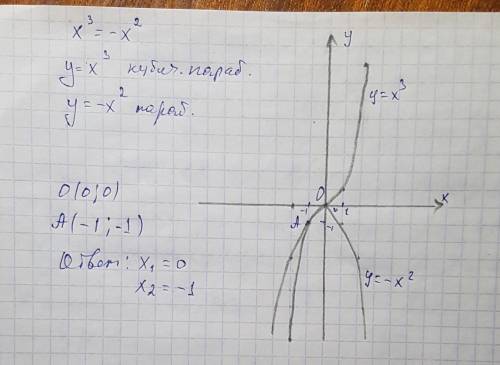 x³ = -x²
y = x³ кубич. параб.
y = -x² параб.
O(0;0)
A(-1;-1)
Ответ: x₁ = 0
x₂ = -1
y
y=x³
O
x
-1
1
A
-1
y=-x²